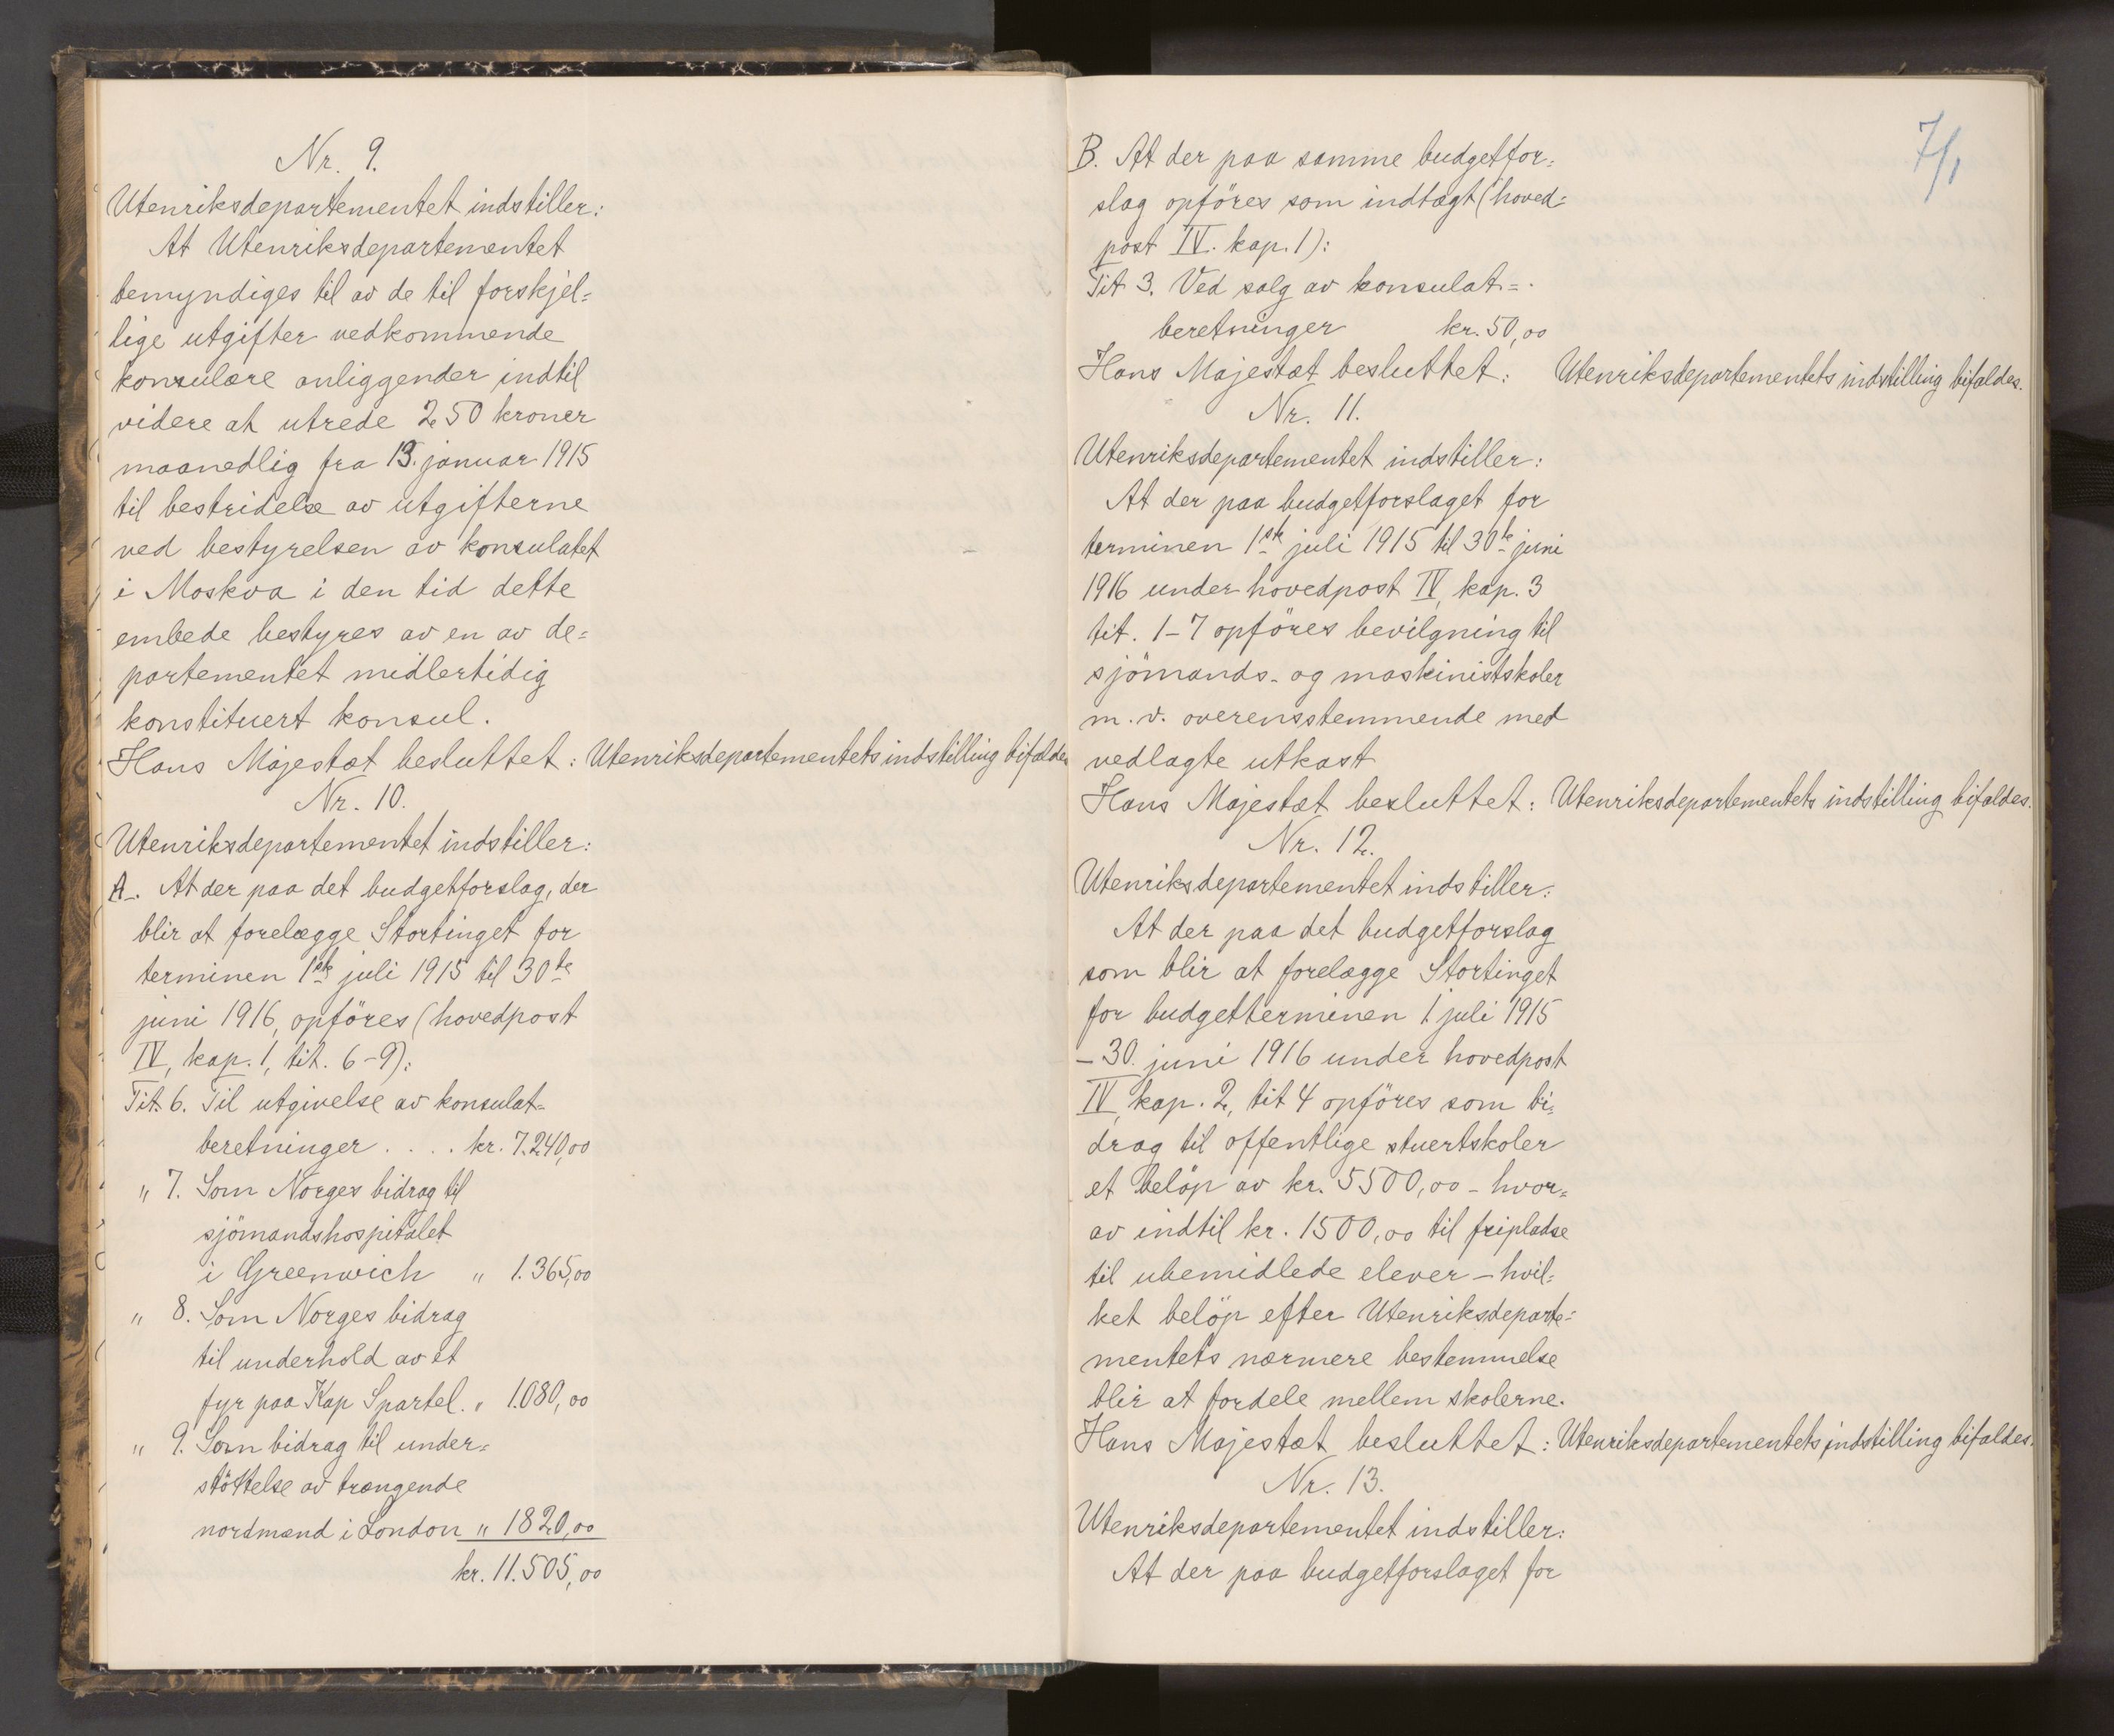 Nr. 9.
Utenriksdepartementet indstiller:
At Utenriksdepartementet
bemyndiges til av de til forskjel=
lige utgifter vedkommende
konsulære anliggender indtil
videre at utrede 250 kroner
maanedlig fra 13. januar 1915
til bestridelse av utgifterne
ved bestyrelsen av konsulatet
i Moskva i den tid dette
embede bestyres av en av de=
partementet midlertidig
konstituert konsul.
Hans Majestæt besluttet: Utenriksdepartementets indstilling bifaldes
Nr. 10.
Utenriksdepartementet indstiller:
A. At der paa det budgetforslag, der
blir at forelægge Stortinget for
terminen 1ste juli 1915 til 30te
juni 1916, opföres (hovedpost
IV, kap. 1, tit. 6-9):
Tit. 6. Til utgivelse av konsulat=
beretninger . . . . kr. 7.240,00
" 7. Som Norges bidrag til
sjömandshospitalet
i Greenwich " 1.365,00
" 8. Som Norges bidrag
til underhold av et
fyr paa Kap Spartel. " 1.080,00
" 9. Som bidrag til under=
stöttelse av trængende
nordmænd i London " 1820,00
kr. 11.505,00
7/1
B. At der paa samme budgetfor=
slag opföres som indtægt (hoved=
post IV. kap. 1):
Tit 3. Ved salg av konsulat=
beretninger kr. 50,00
Hans Majestæt besluttet: Utenriksdepartementets indstilling bifaldes.
Nr. 11.
Utenriksdepartementet indstiller:
At der paa budgetforslaget for
terminen 1ste juli 1915 til 30te juni
1916 under hovedpost IV, kap. 3
tit. 1-7 opföres bevilgning til
sjömands- og maskinistskoler
m.v. overensstemmende med
vedlagte utkast
Hans Majestæt besluttet: Utenriksdepartementets indstilling bifaldes.
Nr. 12.
Utenriksdepartementet indstiller:
At der paa det budgetforslag
som blir at forelægge Stortinget
for budgetterminen 1. juli 1915
- 30. juni 1916 under hovedpost
IV, kap. 2, tit 4 opföres som bi=
drag til offentlige stuertskoler
et belöp av kr. 5500,00 - hvor=
av indtil kr. 1500,00 til fripladse
til ubemidlede elever - hvil=
ket belöp efter Utenriksdeparte=
mentets nærmere bestemmelse
blir at fordele mellem skolerne.
Hans Majestæt besluttet: Utenriksdepartementets indstilling bifaldes.
Nr. 13.
Utenriksdepartementet indstiller:
At der paa budgetforslaget for